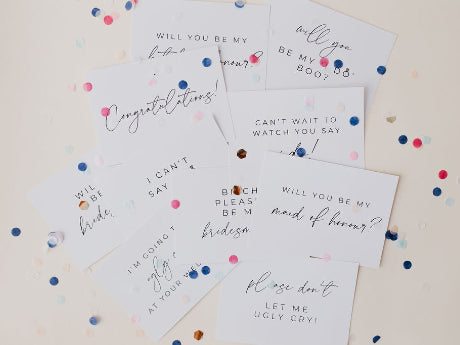 WILL YOU BE MY
of honour?
will you
BE MY
BOO?
Congratulations!
CAN'T WAIT TO
WATCH YOU SAY
BE
I CAN'T
SAY
PLEASE
BE M
bridesm
WILL YOU BE MY
maid of honour?
I'M GOING T
AT YOUR
please don't
LET ME
UGLY CRY!